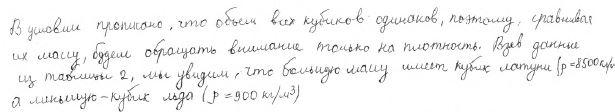 В условии прописано, что объем всех кубиков одинаков, поэтому, сравнивая
их массу, будем обращать внимание только на плотность. Взяв данные
из таблицы 2, мы увидим, что большую массу имеет кубик латуни (ρ=8500 кг/м
а меньшую - кубик льда (ρ=900 кг/м³)